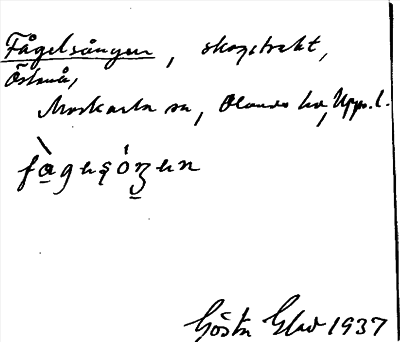 Fågelsången, skogstrakt,
Östmå,
Morkarla sn, Olands hd, Upps. l.
fàgeʂóŋen
Gösta Glad 1937